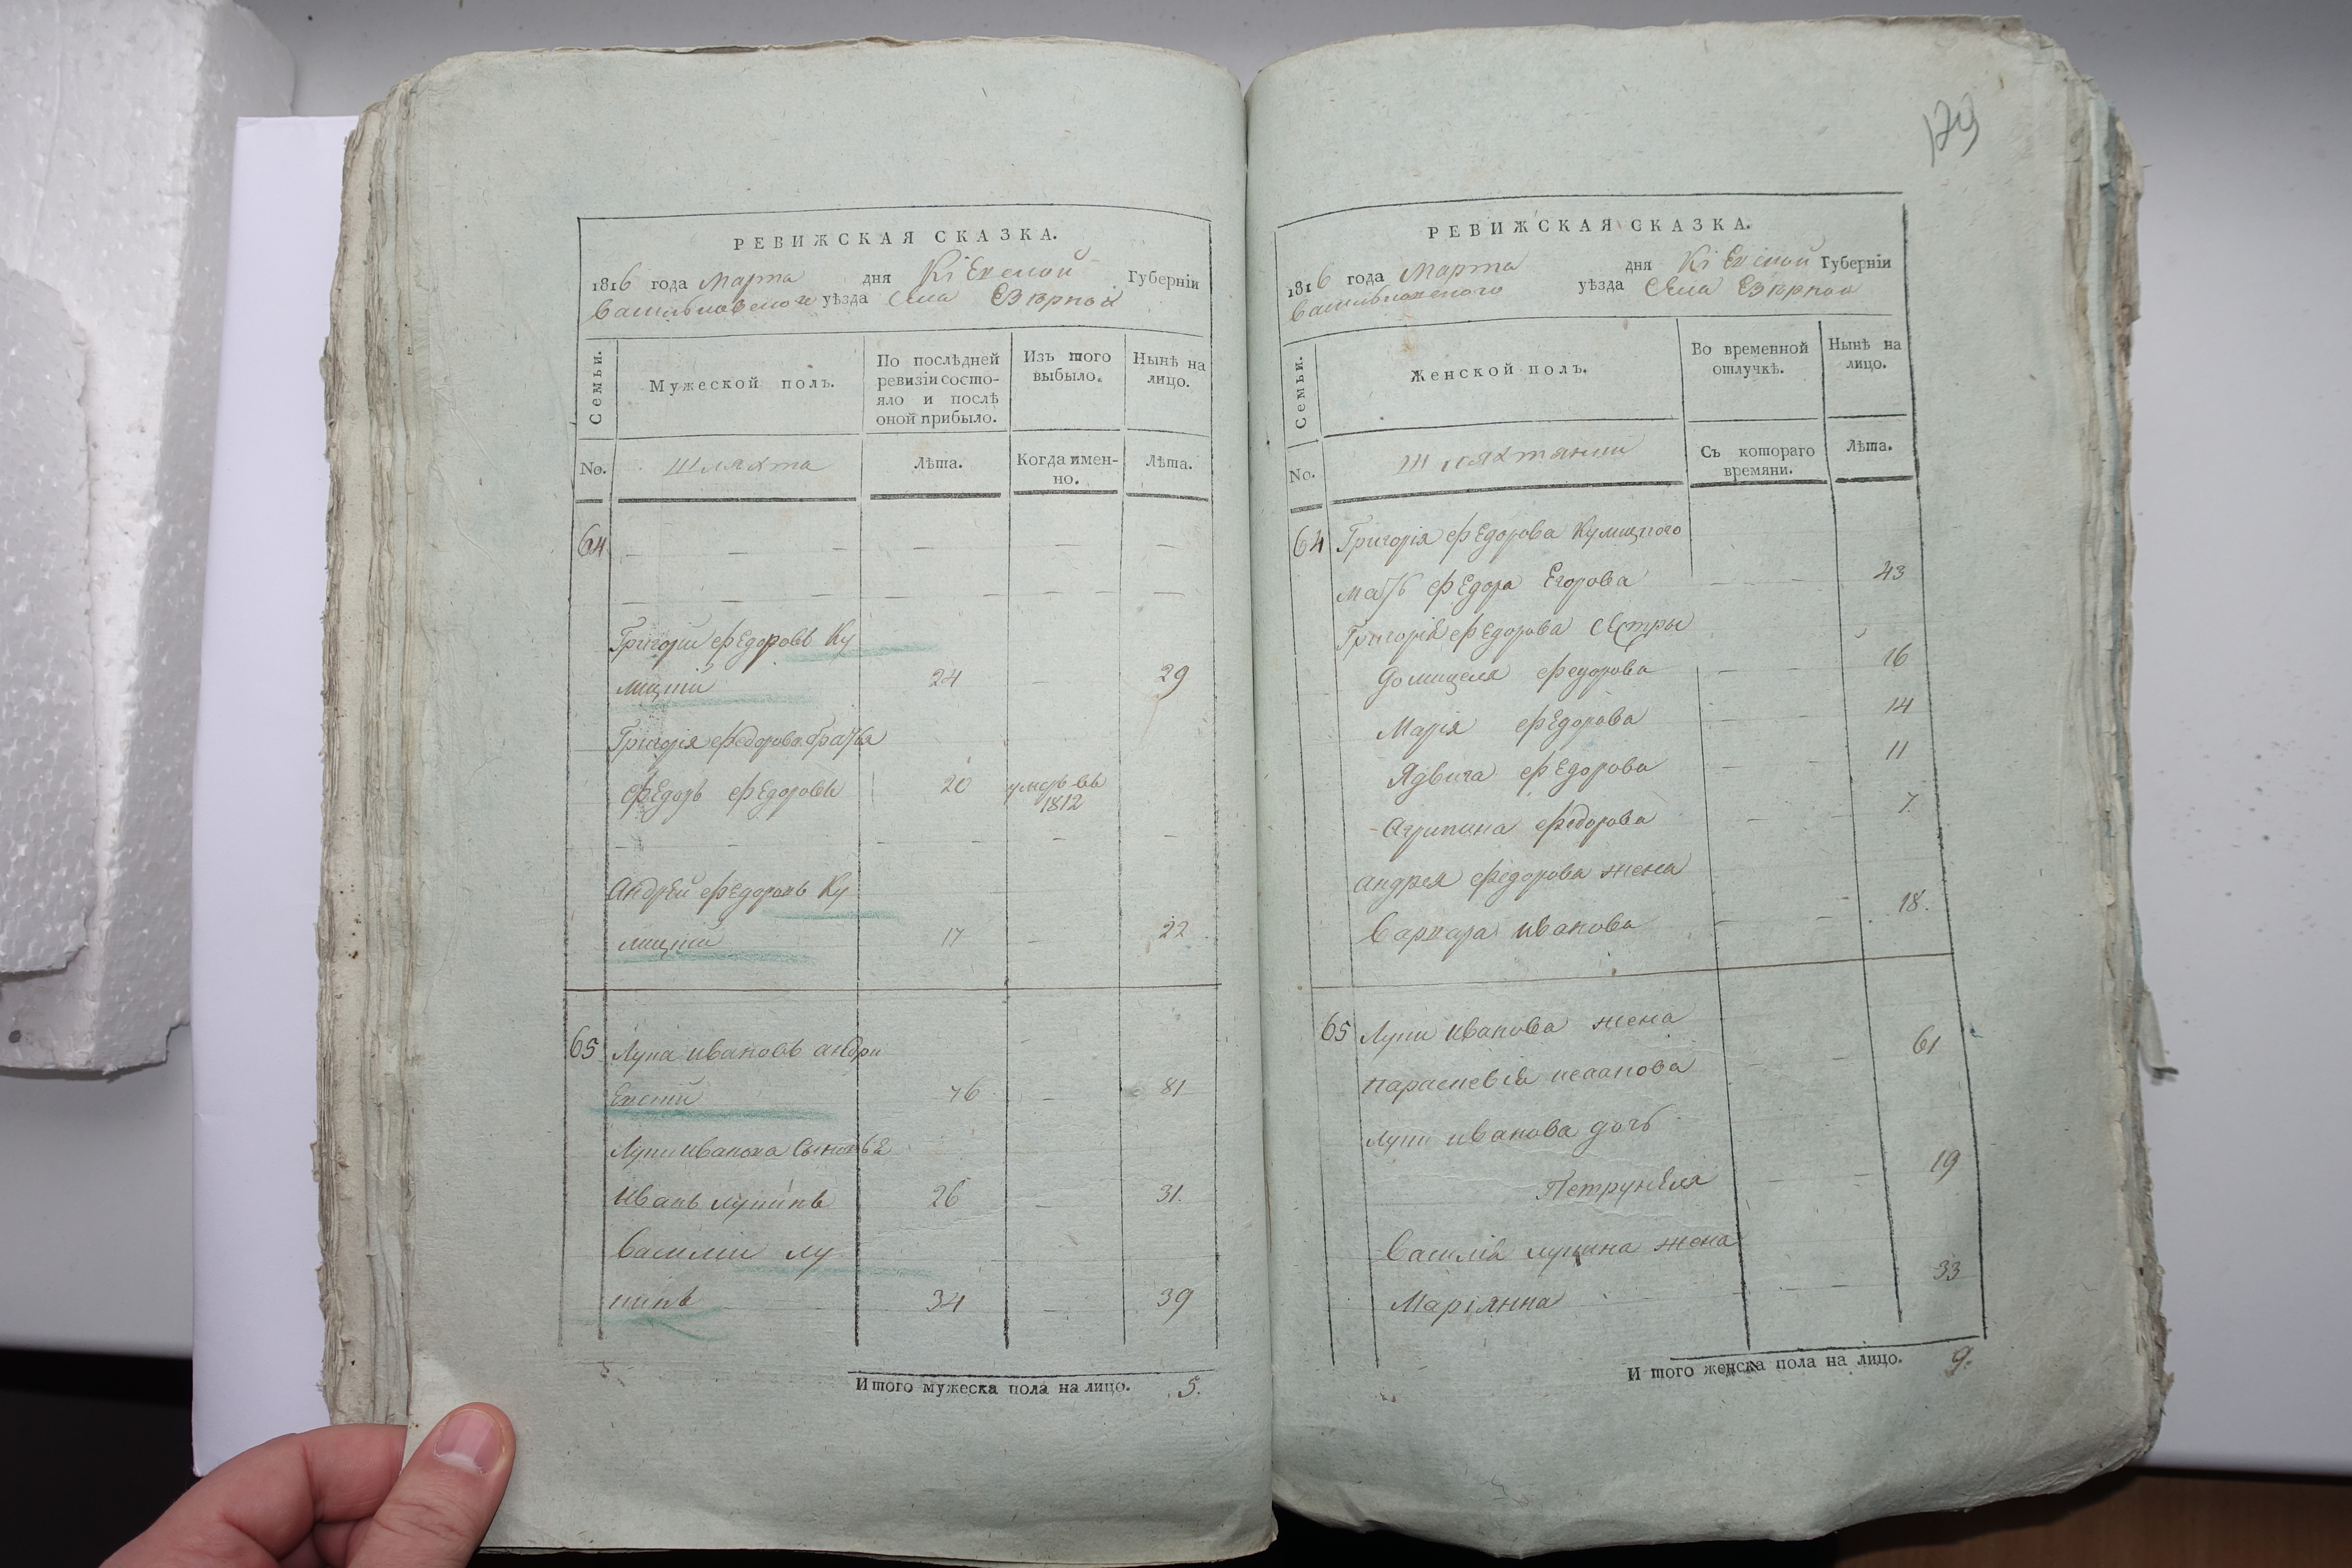 РЕВИЖСКАЯ СКАЗКА.
1816 года Марта дня Кіевской Губерніи
Васильковского уѣзда Села Езѣрной
Семьи.
Мужеской полъ.
По послѣдней ревизіи состо-
яло и послѣ
оной прибыло.
Изъ того
выбыло.
Нынѣ на
лицо.
No.
Шляхта
Лѣта.
Когда имен-
но.
Лѣта.
64
Григорій Федоровъ Ку
лицкій 24 — 29
Григорія Федорова братья
Федоръ Федоровъ 20 умеръ въ
1812
Андрей Федоровъ Ку
лицкій 17 — 22
65 Лупа Ивановъ Андри
Евскій 76 — 81
Лупи Иванова Сыновья
Иванъ Лупинъ 26 — 31.
Василій Лу
пинъ 34 — 39
Итого мужеска пола на лицо. 5.
179
РЕВИЖСКАЯ СКАЗКА.
1816 года Марта дня Кіевской Губерніи
Васильковского уѣзда Села Езѣрной
Семьи.
Женской полъ.
Во временной
отлучкѣ.
Нынѣ на
лицо.
No.
Шляхтянки
Съ котораго
времяни.
Лѣта.
64 Григорія Федорова Кулицкого
мать Федора Егорова — — 43
Григорія Федорова Сестры
Домицеля Федорова — — 16
Марія Федорова — — 14
Ядвига Федорова — — 11
Агрипина Федорова — — 7.
Андрея Федорова жена
Варвара Иванова — — 18.
65 Лупи Иванова жена
Параскевія — 61
Лупи Иванова дочь
Петрунеля — — 19
Василія Лупина жена
Маріянна — — 33
Итого женска пола на лицо. 9.